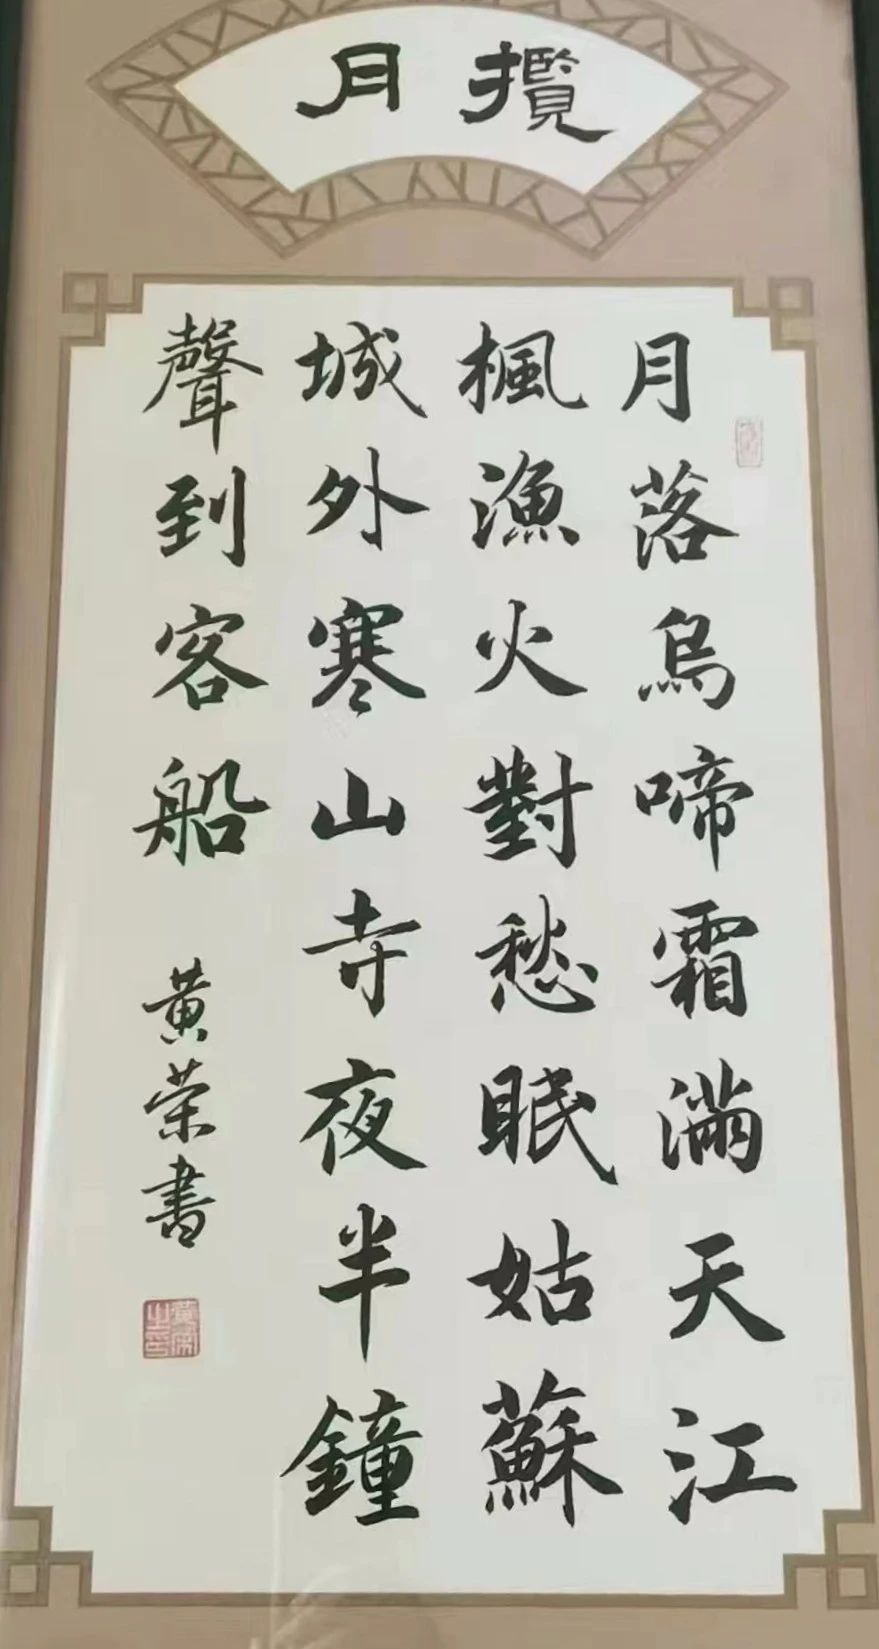 攬月
月落烏啼霜滿天江
楓漁火對愁眠姑蘇
城外寒山寺夜半鐘
聲到客船
黃荣書